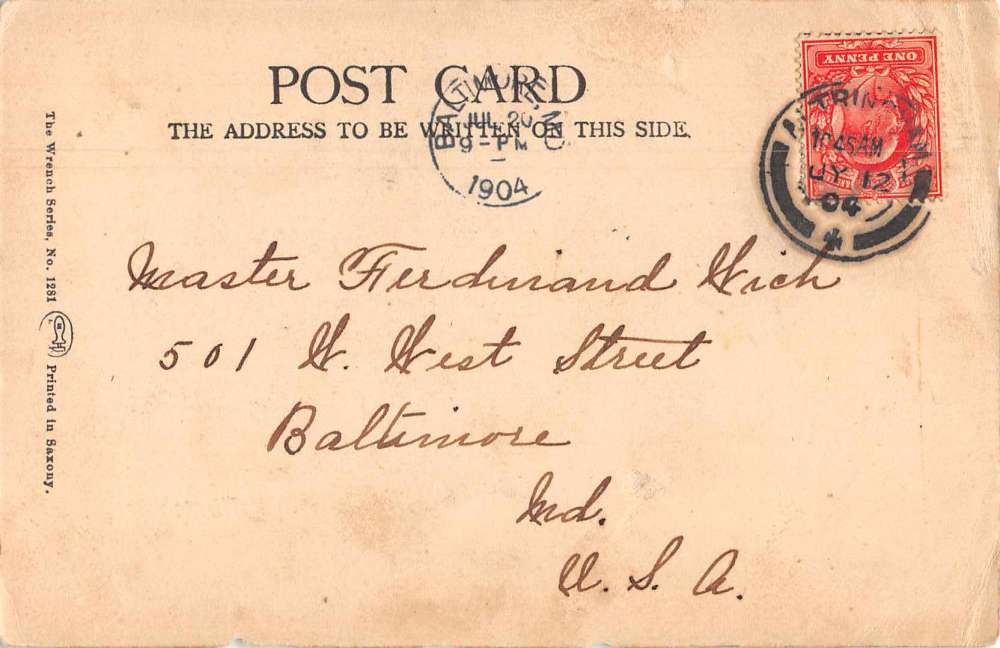 POST CARD
THE ADDRESS TO BE WRITTEN ON THIS SIDE.
BALTIMORE, MD
JUL 20
9-PM
1904
ONE PENNY
1045AM
JY 12
04
Master Ferdinand Wich
501 W. West Street
Baltimore
Md.
U. S. A.
The Wrench Series, No. 1281
Printed in Saxony.